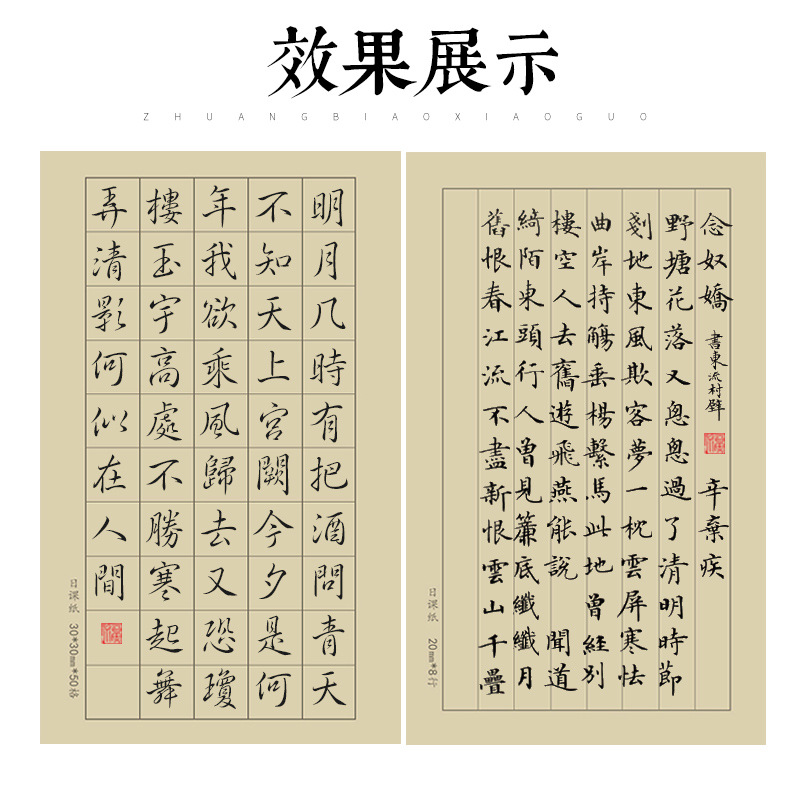 效果展示
ZHUANGBIAOXIAOGUO
明月几時有把酒問青天
不知天上宮闕今夕是何
年我欲乘風歸去又恐瓊
樓玉宇高處不勝寒起舞
弄清影何似在人間
日课纸 30*30mm*50格
念奴嬌 書東流村壁 辛棄疾
野塘花落又悤悤過了清明時節
剗地東風欺客夢一枕雲屏寒怯
曲岸持觴垂楊繫馬此地曾經別
樓空人去舊遊飛燕能說 聞道
綺陌東頭行人曾見簾底纖纖月
舊恨春江流不盡新恨雲山千疊
日课纸 20mm*8行